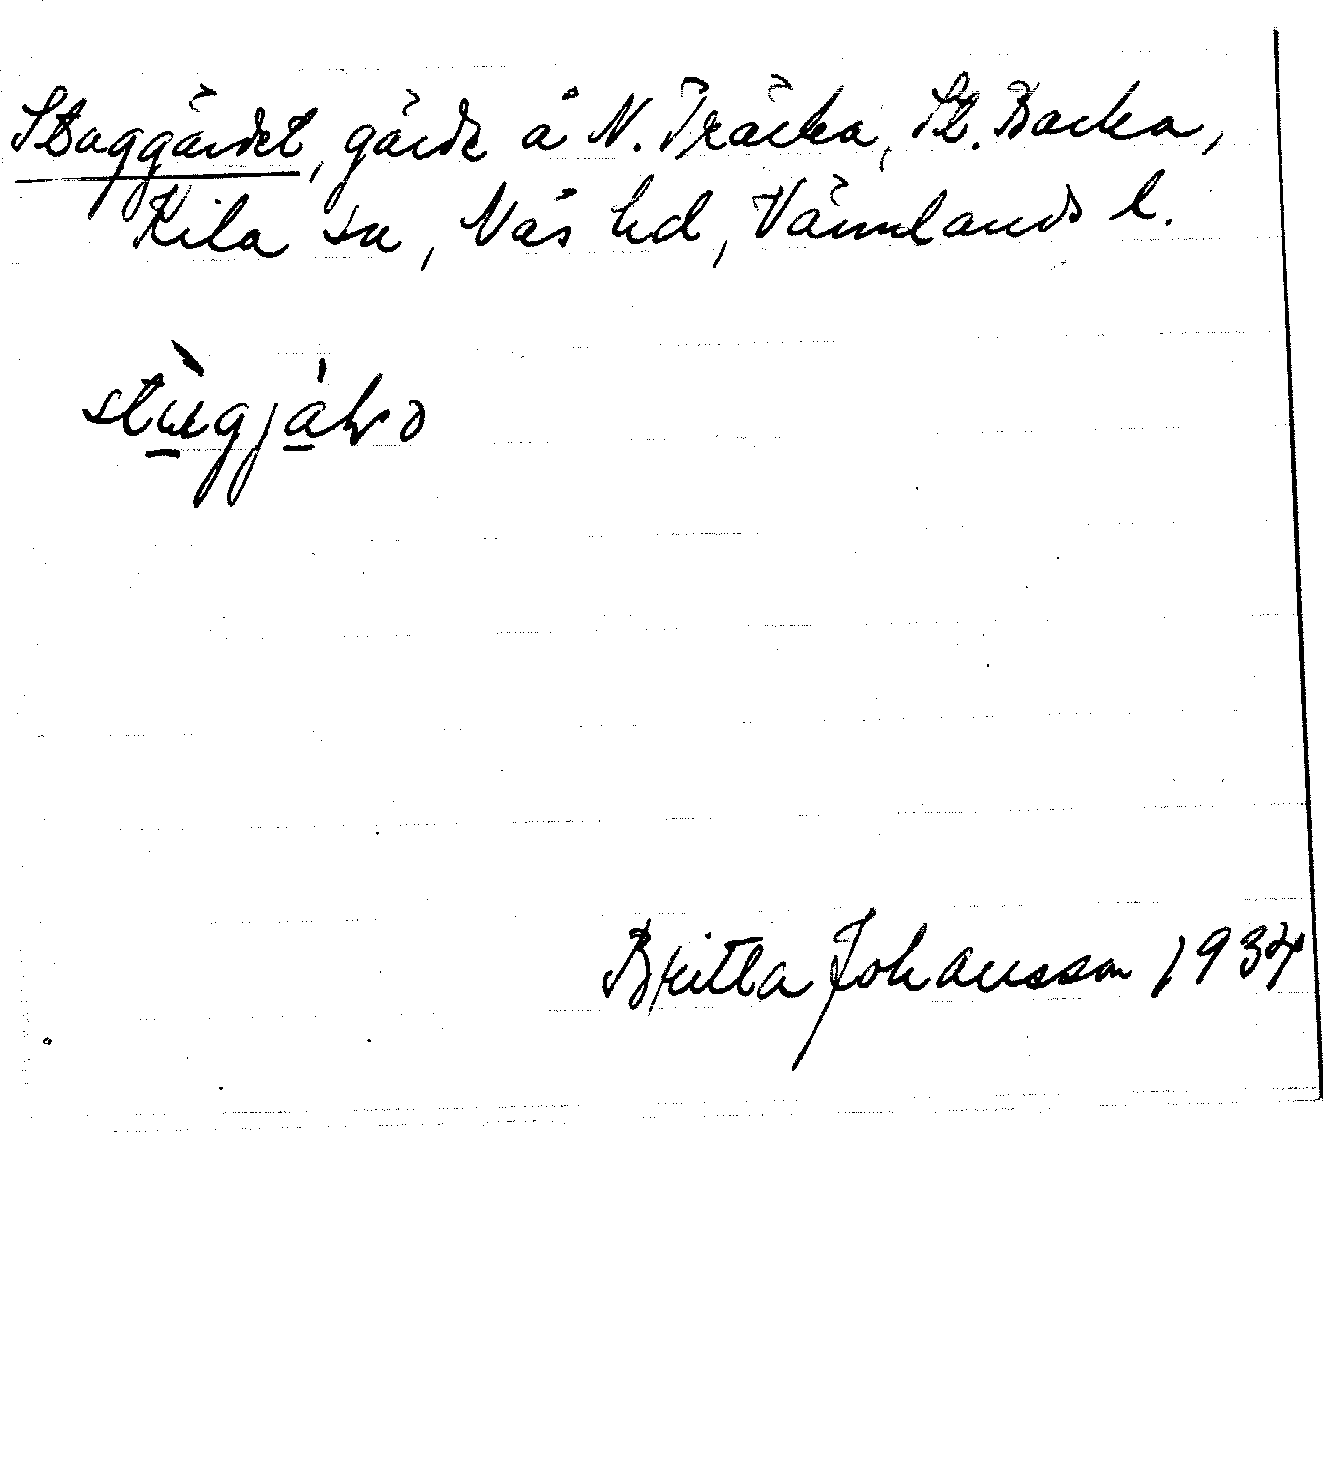 Stuggärdet, gärde å N. Träcka, St. Backa,
Kila sn, Näs hd, Värmlands l.
Britta Johansson 1934